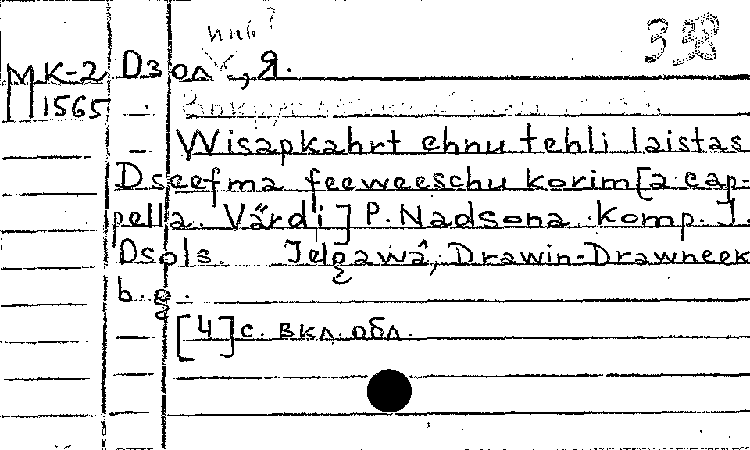 инв?
Дзол, Я.
МК-2
1565
Wisapkahrt ehnu tehli laistas
Dseefma feeweeschu korim [a cap-
pella. Vārdi] P. Nadsona. Komp. J.
Dsols. Jelgawâ, Drawin-Drawneek
b. g.
[4] с. вкл. обл.